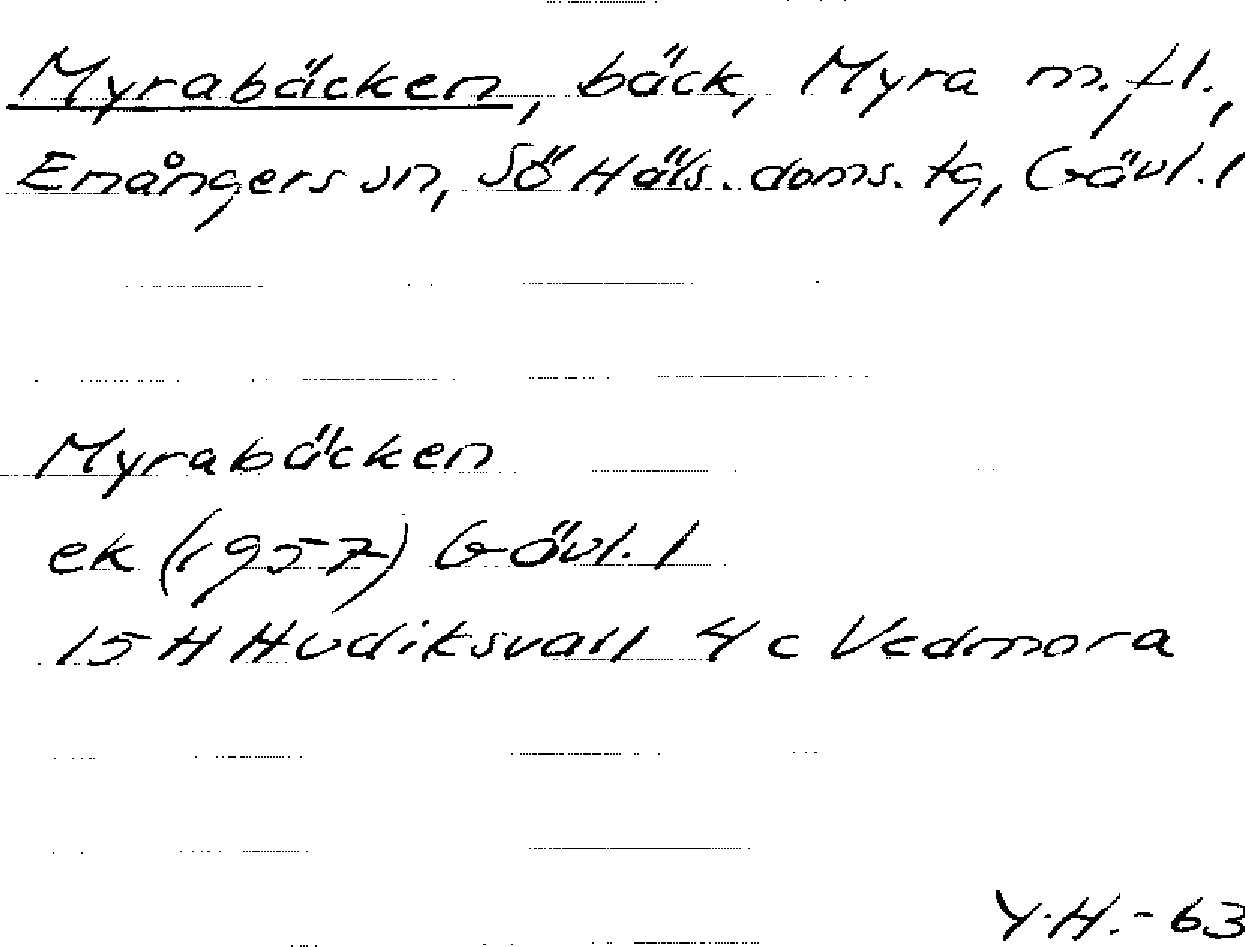 Myrabäcken, bäck, Myra m.fl.,
Enångers sn, Sö Häls. doms. tg, Gävl. l
Myrabäcken
ek (1957) Gävl. l
15 H Hudiksvall 4 c Vedmora
Y.H.-63